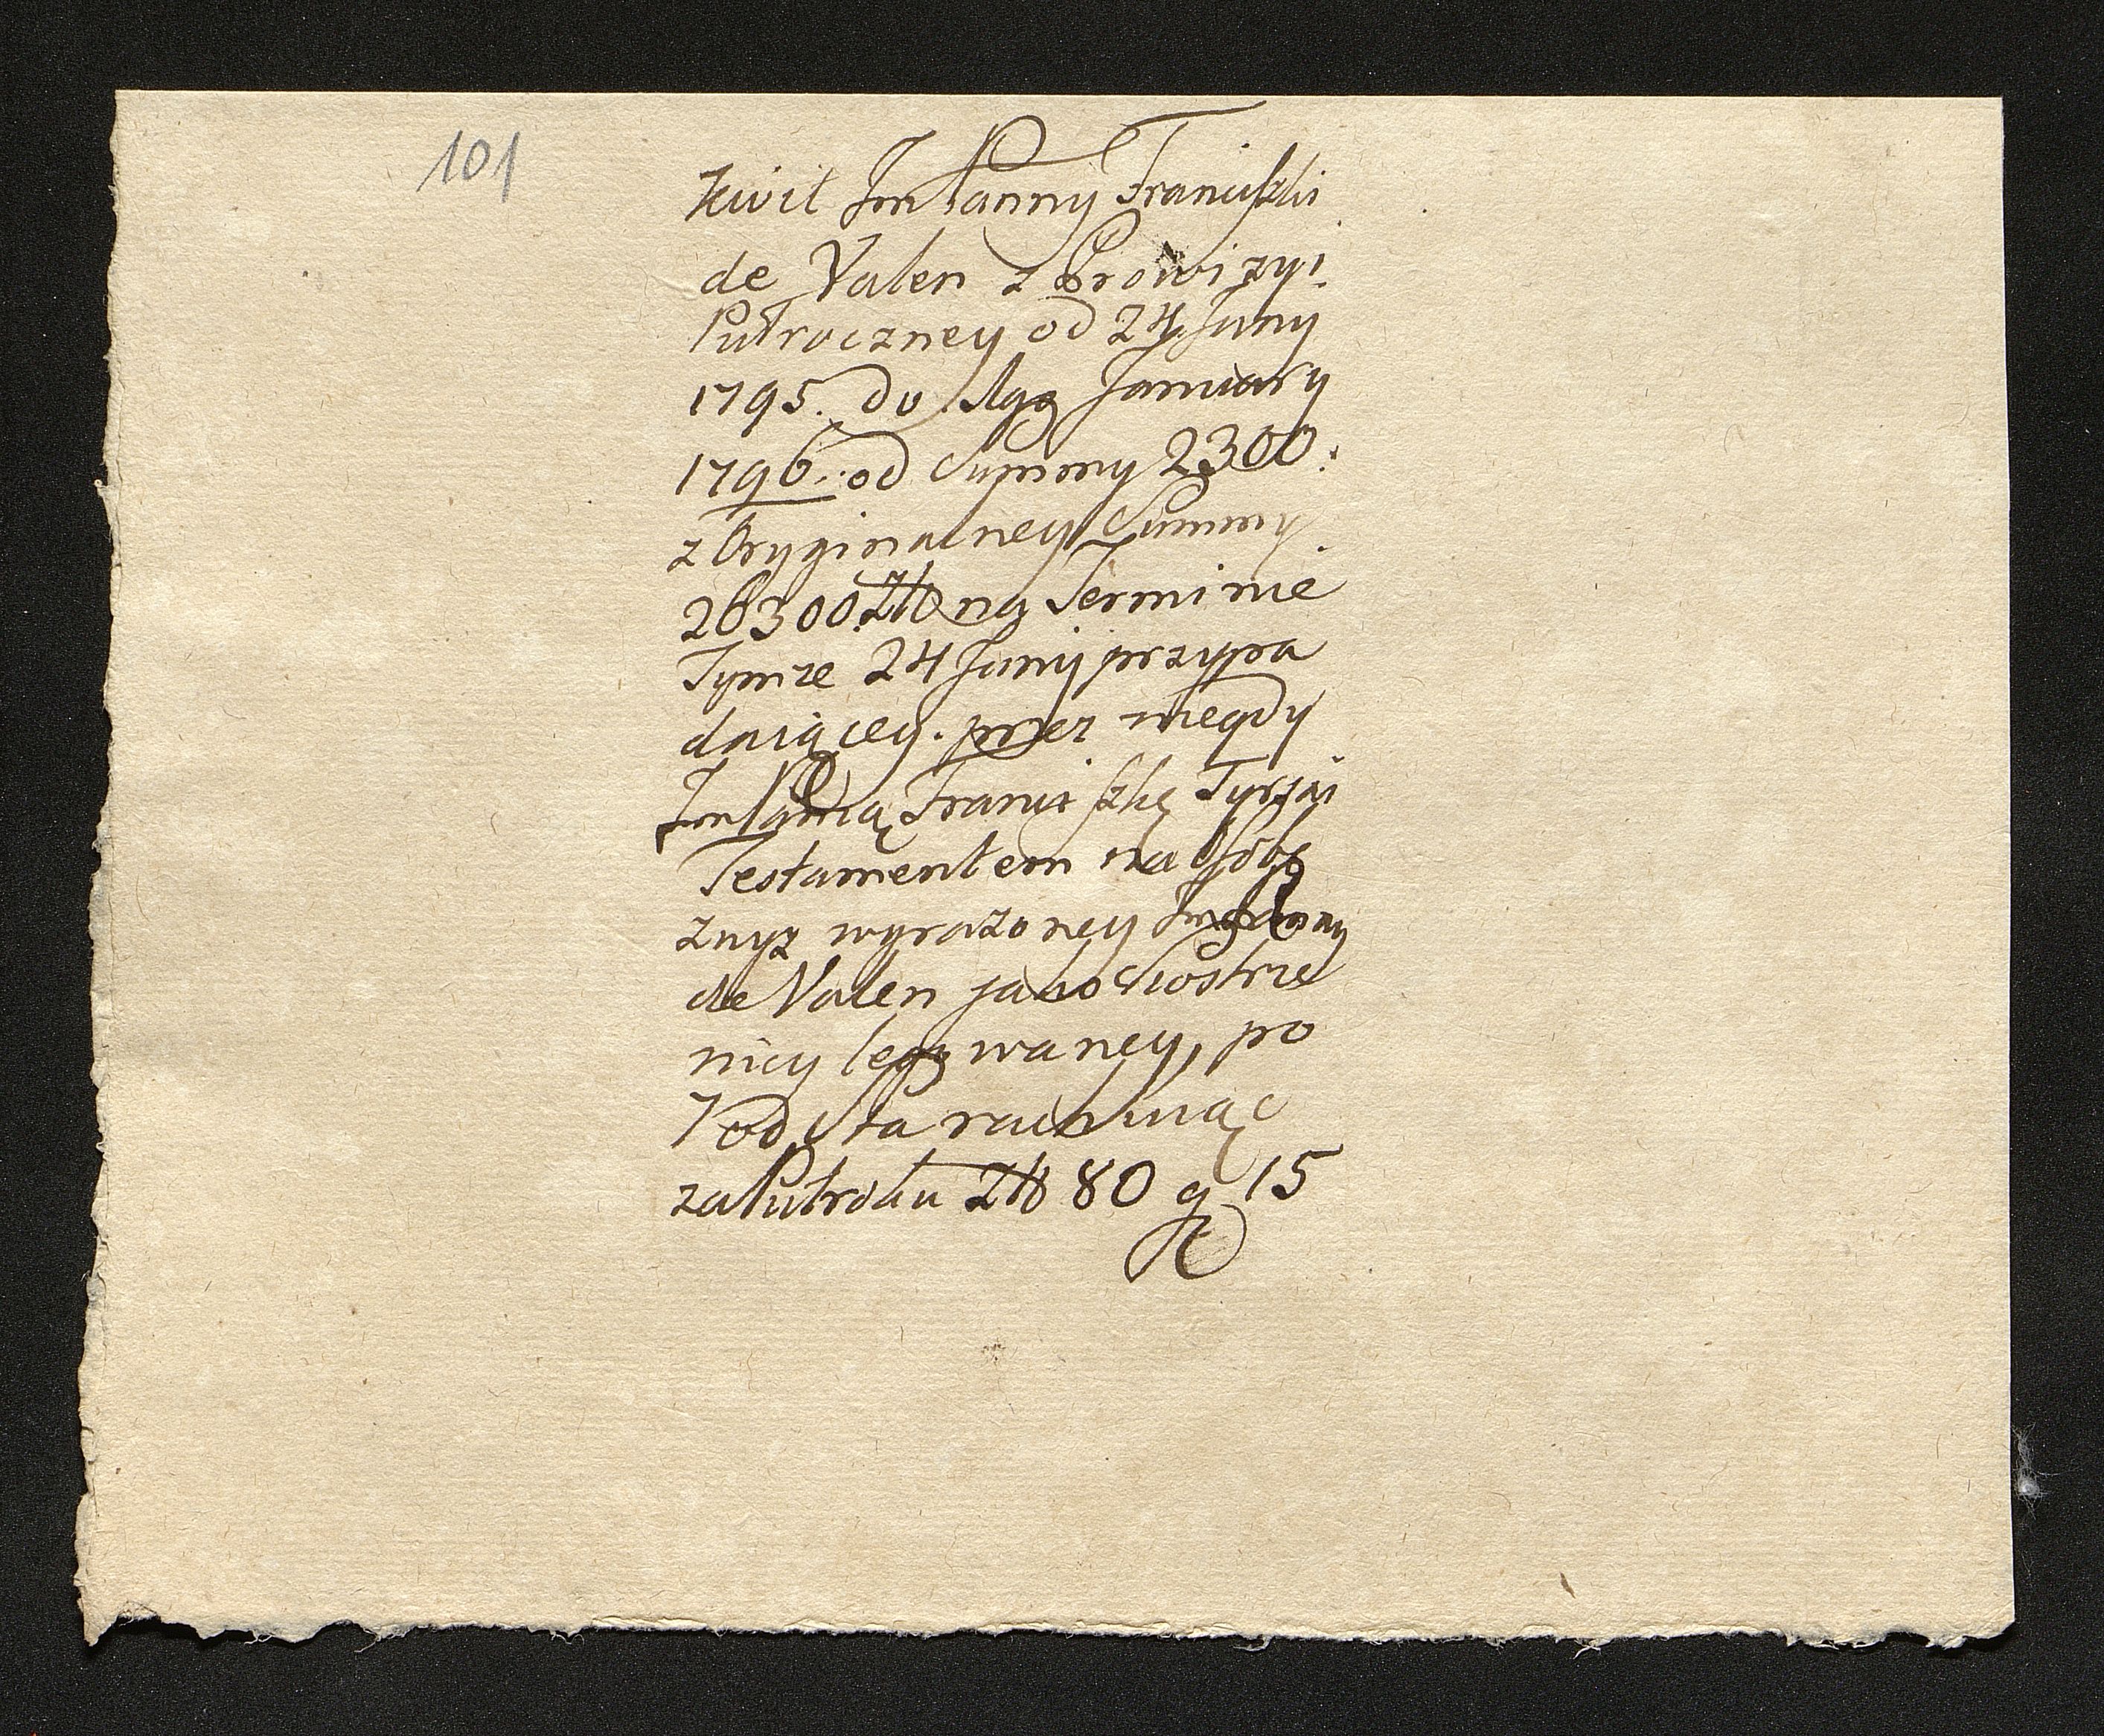 101
Kwit Jm Panny Franciszki
de Valen z Prowizyi
Pułroczney od 24 Juny
1795. do Ag January
1796. od Summy 2300.
z Oryginalney Summy
26300 Zł na Terminie
Tymze 24 Juny przypa
daiącey. przez niegdy
Jm Panią Franciszkę
Testamentem na Osobę
wyrażoney Jm Panny
de Valen jako Siostrze
nicy legowaney, po
7 od sta rachuiąc
za Pułroku Zł 80 g 15